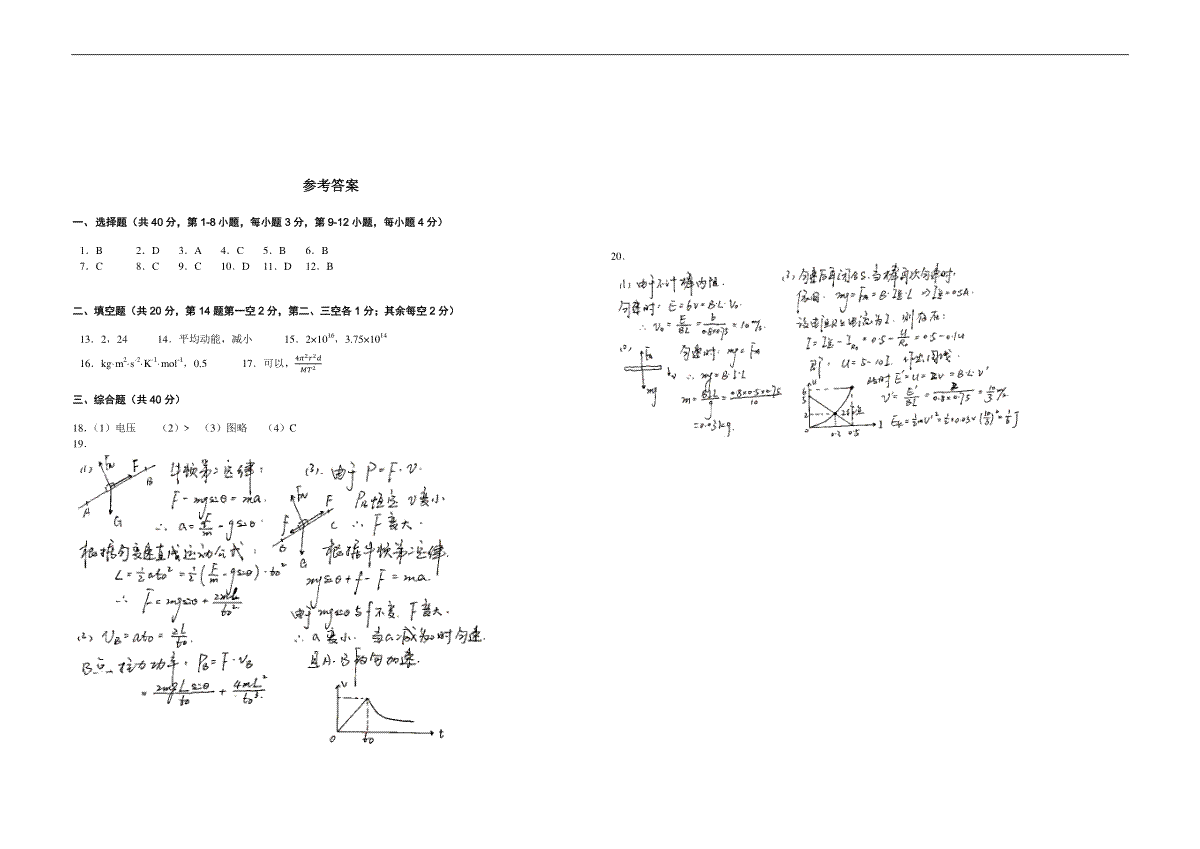 参考答案
一、选择题（共40分，第1-8小题，每小题3分，第9-12小题，每小题4分）
1．B 2．D 3．A 4．C 5．B 6．B
7．C 8．C 9．C 10．D 11．D 12．B
二、填空题（共20分，第14题第一空2分，第二、三空各1分；其余每空2分）
13．2，24 14．平均动能，减小 15．2×10¹⁶，3.75×10¹⁴
16．kg·m²·s⁻²·K⁻¹·mol⁻¹，0.5 17．可以，4π²r²d/MT²
三、综合题（共40分）
18.（1）电压 （2）> （3）图略 （4）C
19.
(1) FN F B A G
牛顿第二定律：
F－mgsinθ＝ma.
∴ a＝F/m－gsinθ
根据匀变速直线运动公式：
L＝½at0²＝½(F/m－gsinθ)·t0²
∴ F＝mgsinθ＋2mL/t0²
(2) vB＝at0＝2L/t0.
B点，拉力功率：PB＝F·vB
＝2mgLsinθ/t0＋4mL²/t0³.
(3). 由于P＝F·v.
FN F f C B G
P恒定 v变小
∴ F变大.
根据牛顿第二定律.
mgsinθ＋f－F＝ma.
由于mgsinθ与f不变，F变大.
∴ a变小. 当a减为0时匀速.
且A.B为匀加速.
v 0 t0 t
20．
(1) 由于不计棒内阻
匀速时：E＝6V＝B·L·v0
∴ v0＝E/BL＝6/0.8×0.75＝10m/s.
(2) FM v mg
匀速时：mg＝FM
∴ mg＝B·I·L
m＝BIL/g＝0.8×0.5×0.75/10
＝0.03kg.
(3) 匀速后再闭合S.当棒再次匀速时，
mg＝FM＝B·I总·L ⇒ I总＝0.5A.
I＝I总－IR0＝0.5－U/R0＝0.5－0.1U
即：U＝5－10I.
U 6 5 2 0 0.3 0.5 I
此时E'＝U＝2V＝B·L·v'
v'＝E'/BL＝2/0.8×0.75＝10/3 m/s
Ek＝½mv'²＝½×0.03×(10/3)²＝1/6 J